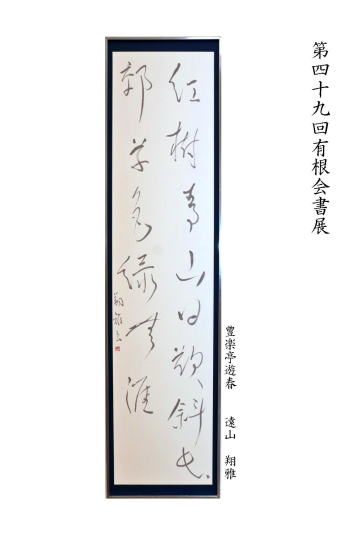 第四十九回有根会書展
紅樹青山日欲斜長
郊草色緑無涯
翔雅書
豊楽亭遊春　遠山　翔雅